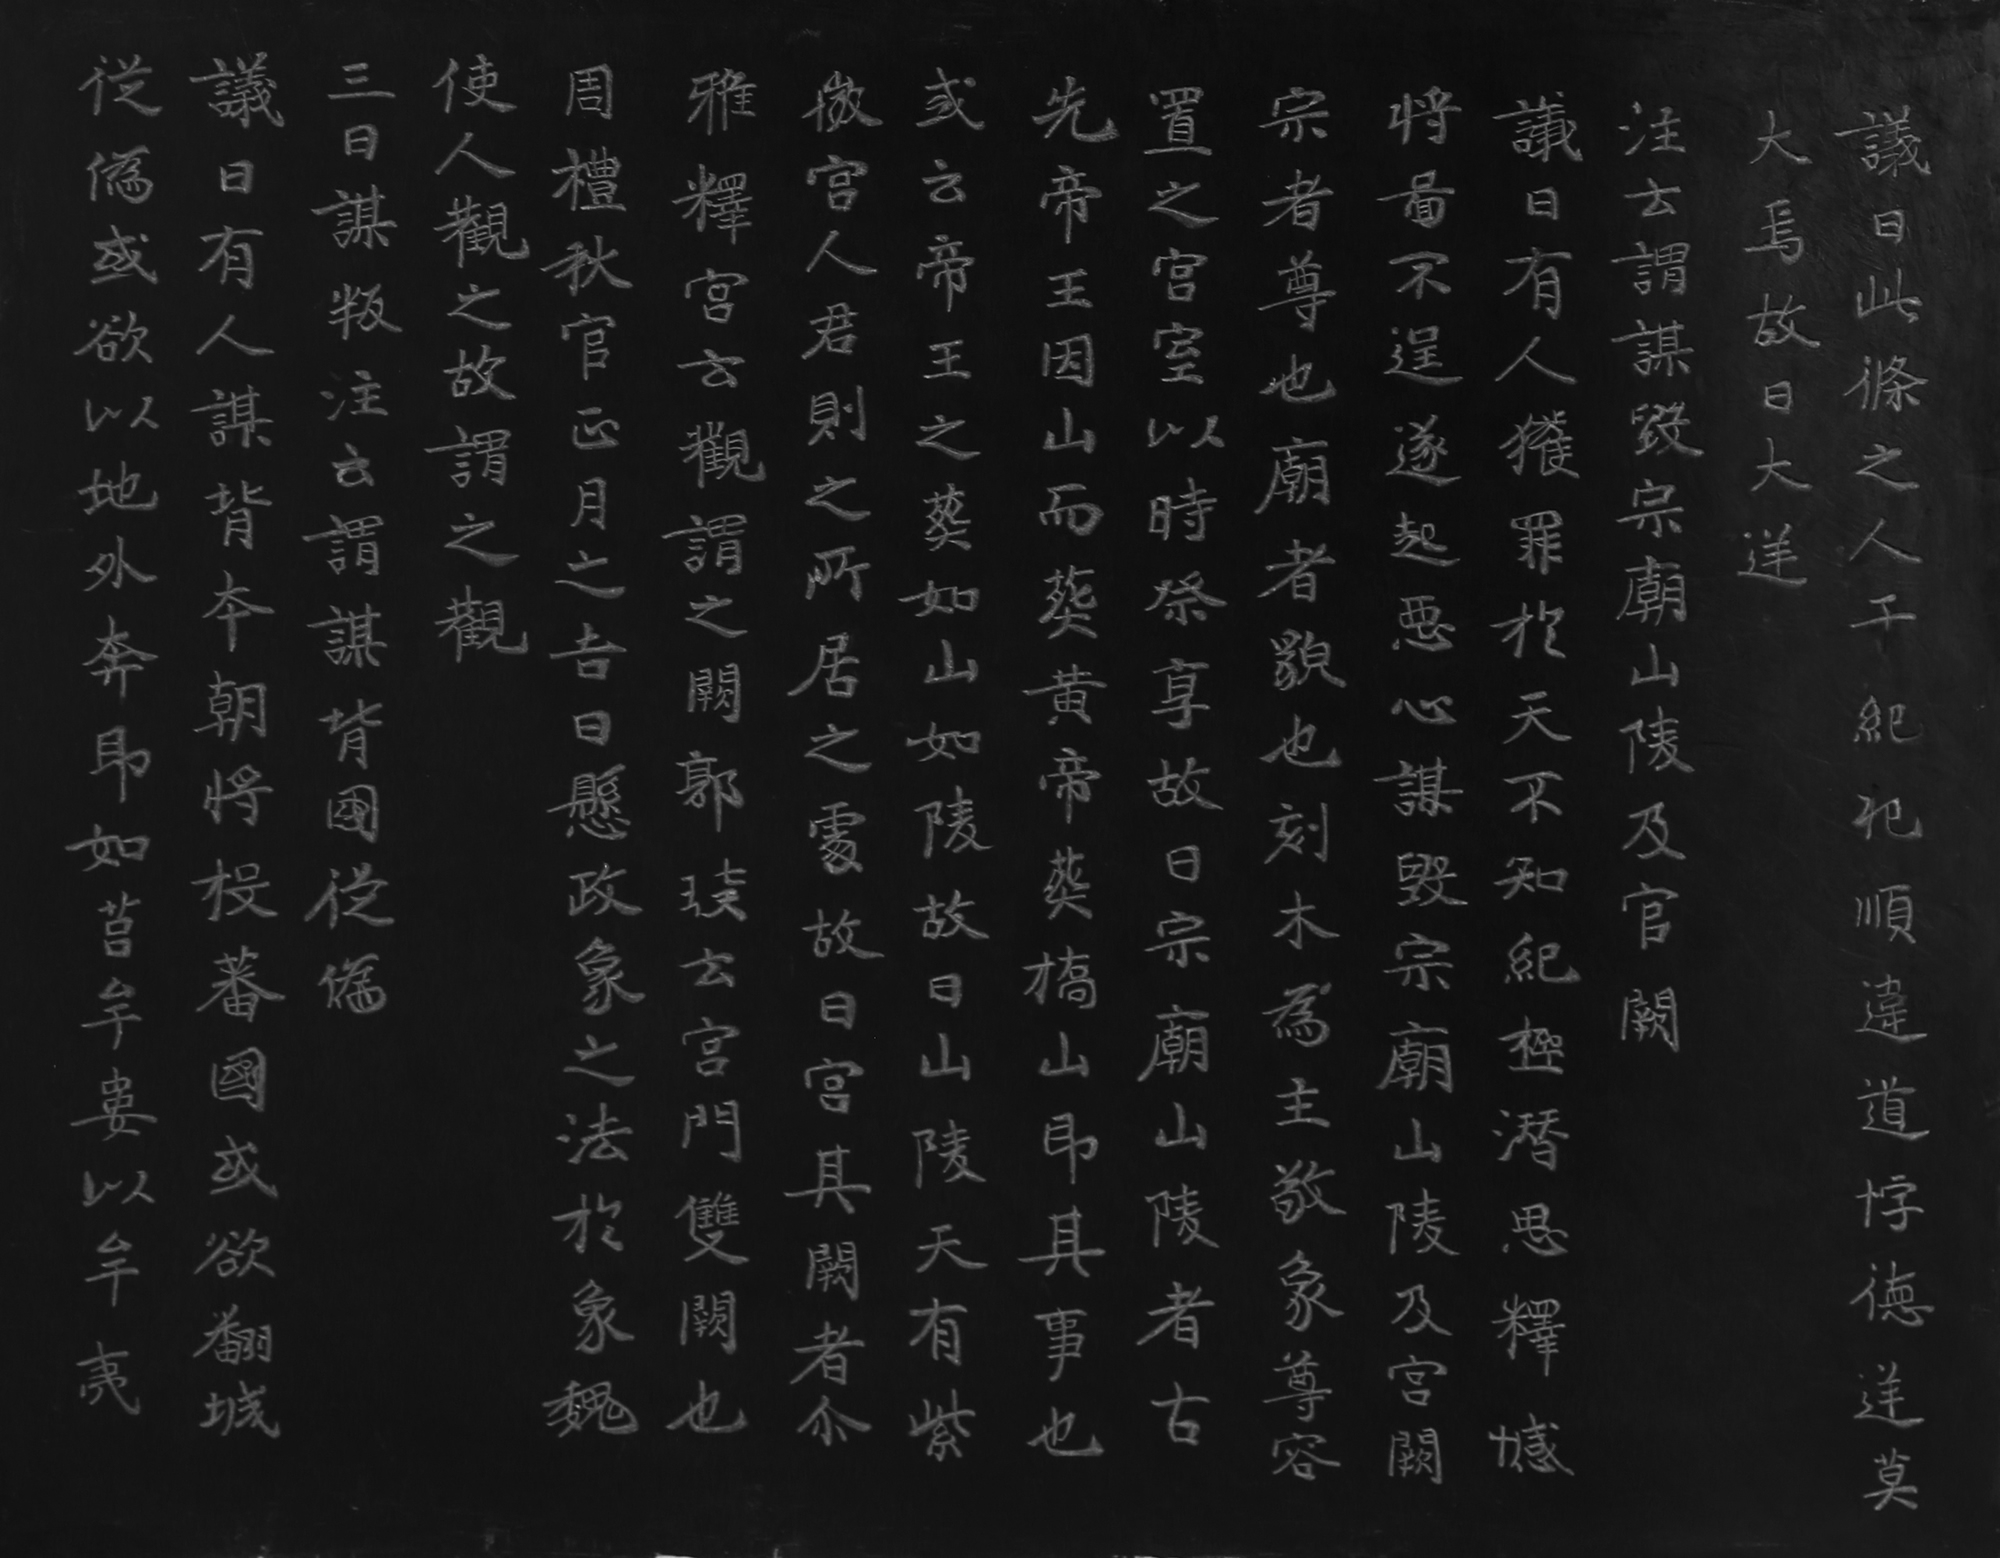 議曰此條之人干紀犯順違道悖德逆莫
大焉故曰大逆
注云謂謀毀宗廟山陵及官闕
議曰有人獲罪於天不知紀極潛思釋憾
將畐不逞遂起惡心謀毀宗廟山陵及宮闕
宗者尊也廟者貌也刻木為主敬象尊容
置之宮室以時祭享故曰宗廟山陵者古
先帝王因山而葬黃帝葬橋山即其事也
或云帝王之葬如山如陵故曰山陵天有紫
微宮人君則之所居之處故曰宮其闕者尒
雅釋宮云觀謂之闕郭璞云宮門雙闕也
周禮秋官正月之吉日懸政象之法於象魏
使人觀之故謂之觀
三曰謀叛注云謂謀背國從偽
議曰有人謀背本朝將投蕃國或欲翻城
從偽或欲以地外奔即如莒牟婁以牟夷